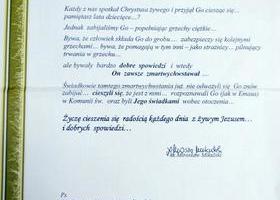 Każdy z nas spotkał Chrystusa żywego i przyjął Go ciesząc się...
pamiętasz lata dziecięce...?
Jednak zabijaliśmy Go – popełniając grzechy ciężkie...
Bywa, że człowiek składa Go do grobu… zabezpieczy się kolejnymi
grzechami... bywa, że pomagają w tym inni – jako strażnicy... pilnujący
trwania w grzechu...
ale bywały bardzo dobre spowiedzi i wtedy
On zawsze zmartwychwstawał ...
Świadkowie tamtego zmartwychwstania już nie odważyli się Go znów
zabijać... cieszyli się, że jest z nimi... rozpoznawali Go (jak w Emaus)
w Komunii św. oraz byli Jego świadkami wobec otoczenia...
Życzę cieszenia się radością każdego dnia z żywym Jezusem...
i dobrych spowiedzi...
ks. Mirosław
Ps.